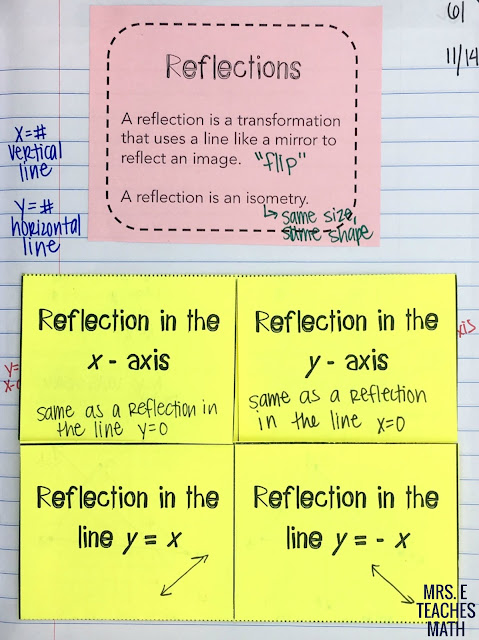 61
11/14
Reflections
A reflection is a transformation
that uses a line like a mirror to
reflect an image. "flip"
A reflection is an isometry.
↳ same size,
same shape
x=#
vertical
line
y=#
horizontal
line
Reflection in the
x - axis
same as a reflection in
the line y=0
Reflection in the
y - axis
same as a reflection
in the line x=0
y=
x=
xis
Reflection in the
line y = x
Reflection in the
line y = - x
MRS. E
TEACHES
MATH